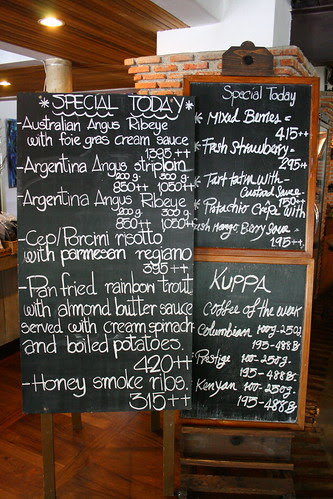 *SPECIAL TODAY*
-Australian Angus Ribeye
with foie gras cream sauce
1595++
-Argentina Angus striploin
200 g. 300 g.
850++ 1,050++
-Argentina Angus Ribeye
200 g. 300 g.
850++ 1,050++
-Cep/Porcini risotto
with parmesan regiano
395++
-Pan fried rainbow trout
with almond butter sauce
served with cream spinach
and boiled potatoes.
420++
-Honey smoke ribs.
315++
Special Today
* Mixed Berries =
415++
* Fresh Strawberry-
295++
* Tart tatin with -
Custard Sauce
150++
* Pistachio Crêpe with
Fresh Mango Berry Sauce -
195++
KUPPA
Coffee of the week
Columbian 100g-250g.
195-488฿
Prestige 100-250g.
195-488฿.
Kenyan 100-250g.
195-488฿